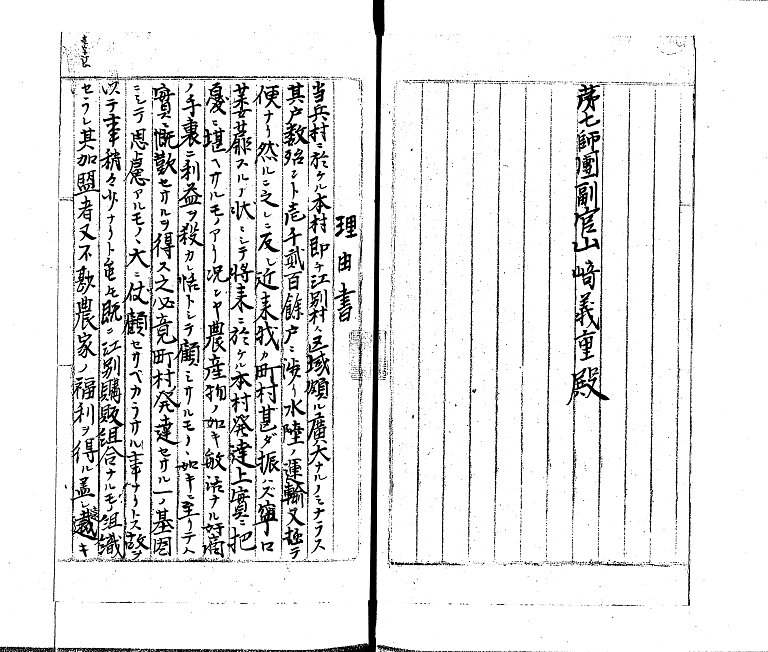 第七師團副官山﨑義重殿
理由書
当兵村ニ於ケル本村即チ江別村ハ区域頗ル廣大ナルノミナラス
其戸数殆ント壱千貳百餘戸ニ渉リ水陸ノ運輸又極テ
便ナリ然ルニ之レニ反シ近来我カ町村甚ダ振ハズ寧ロ
萎靡スルノ状ニシテ将来ニ於ケル本村発達上實ニ把
憂ニ堪ヘサルモノアリ况ンヤ農産物ノ如キ敏活ナル奸商
ノ手裏ニ利益ヲ殺カレ恬トシテ顧ミサルモノヽ如キニ至リテハ
實ニ慨歎セサルヲ得ス之必竟町村発達セサル一ノ基因
ニシテ思慮アルモノヽ大ニ仗顧セサベカラサル事ナリトス故ヲ
以テ事稍々少ナリト雖モ既ニ江別購販組合ナルモノ組織
セラレ其加盟者又不尠農家ノ福利ヲ得ル盖シ
キ